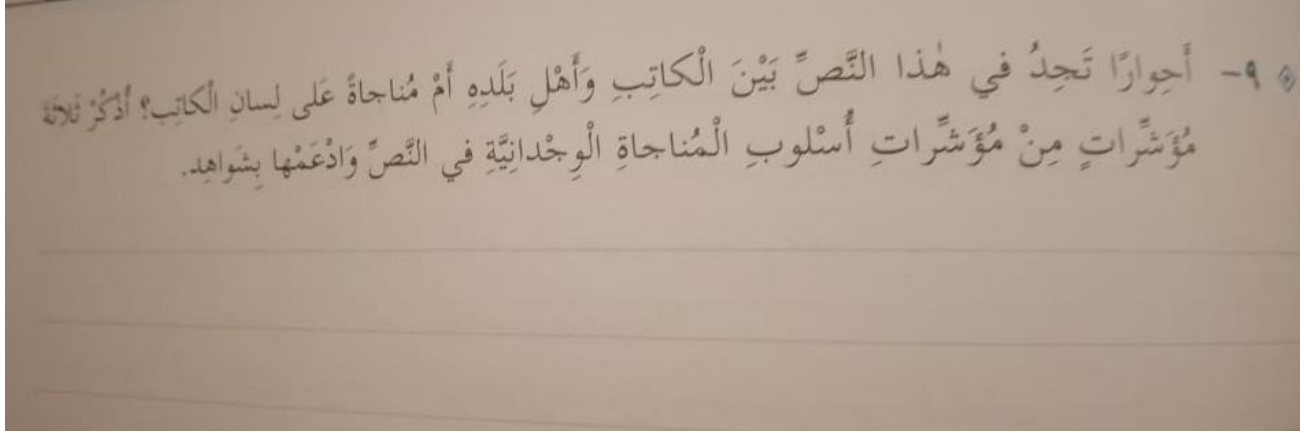 ٩- أَحِوارًا تَجِدُ في هٰذا النَّصِّ بَيْنَ الْكاتِبِ وَأَهْلِ بَلَدِهِ أَمْ مُناجاةً عَلى لِسانِ الْكاتِبِ؟ أُذْكُرْ ثَلاثَةَ
مُؤَشِّراتٍ مِنْ مُؤَشِّراتِ أُسْلوبِ الْمُناجاةِ الْوِجْدانِيَّةِ في النَّصِّ وَادْعَمْها بِشَواهِد.